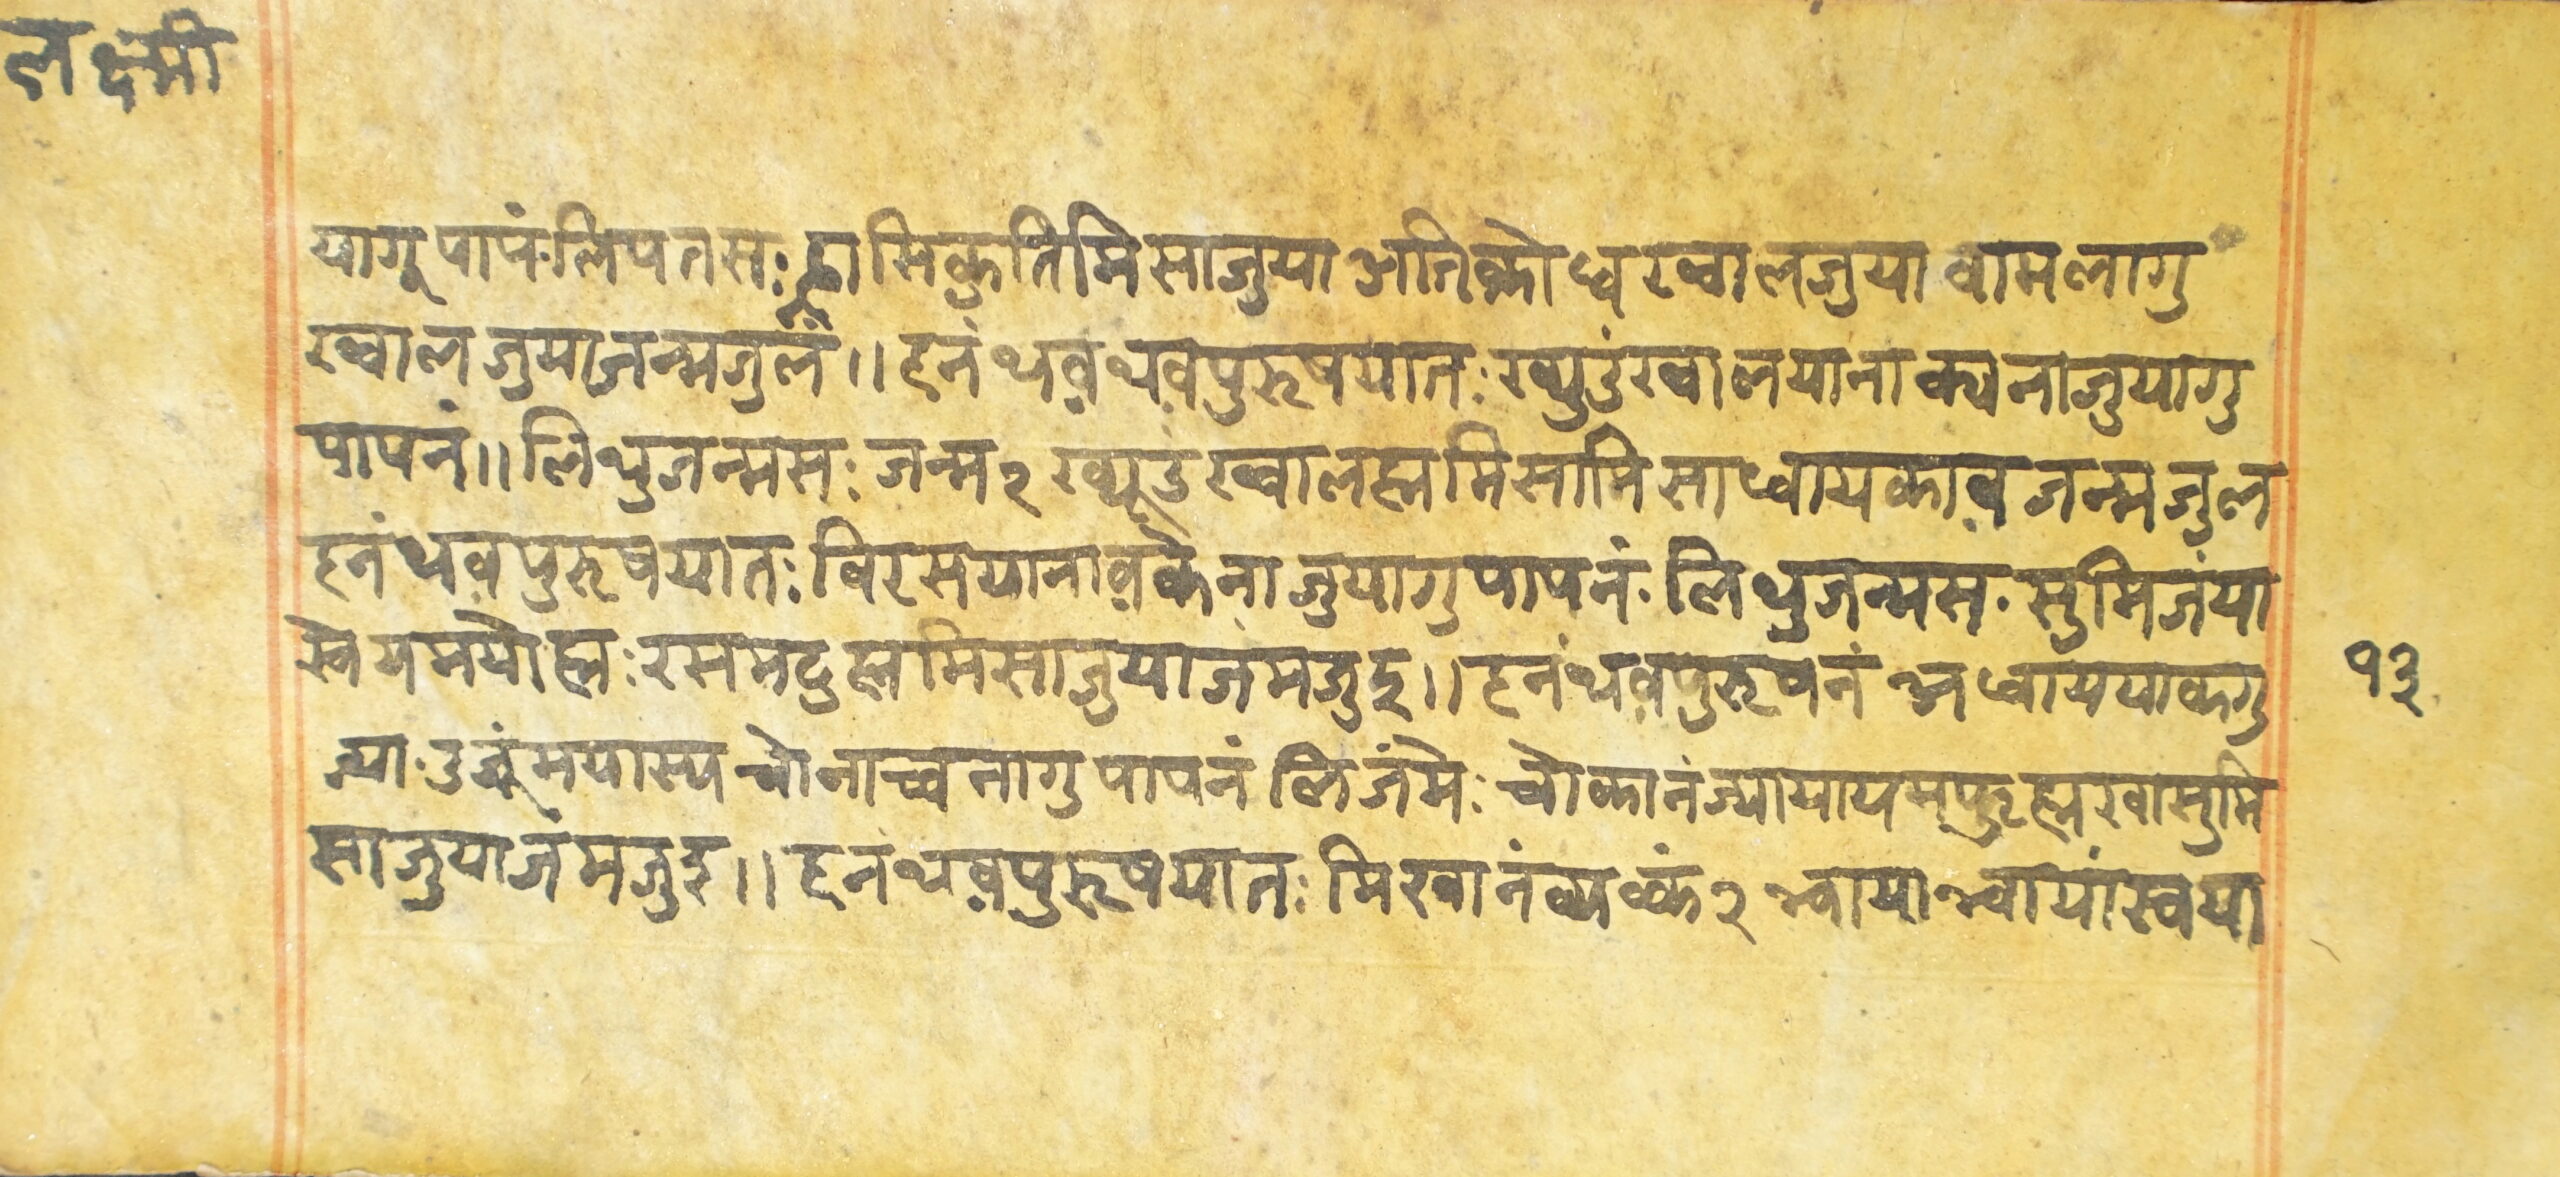 लक्ष्मी
यागू पापं लिपतस: हामिकुतिमिसाजुया अतिक्रोध्व ख्वालजुया वामलागु
ख्वालजुयाजन्मजुलं ॥ हनं थव थवपुरूषयात: ख्युउं ख्वालयाना क्यनाजुयागु
पापनं ॥ लिथुजन्मस: जन्म२ ख्यूउं ख्वालह्ममिसामिसा ध्वायकाव जन्मजुल
हनं थवपुरूषयात: विरसयानाव केनाजुयागु पापनं लिथुजन्मस सुमिजंया
स्नेयमयोह्म: रसमदुह्ममिसाजुयाजंमजुइ ॥ हनंथवपुरूषनं ध्वाययाकगु
ज्या मयास्य चोनाच्वनागु पापनं लिजंमे: चोकानंज्यायायम्फुह्म मि
साजुयाजंमजुइ ॥ हनंथवपुरूषयात: मिखानं २ स्वया
१३